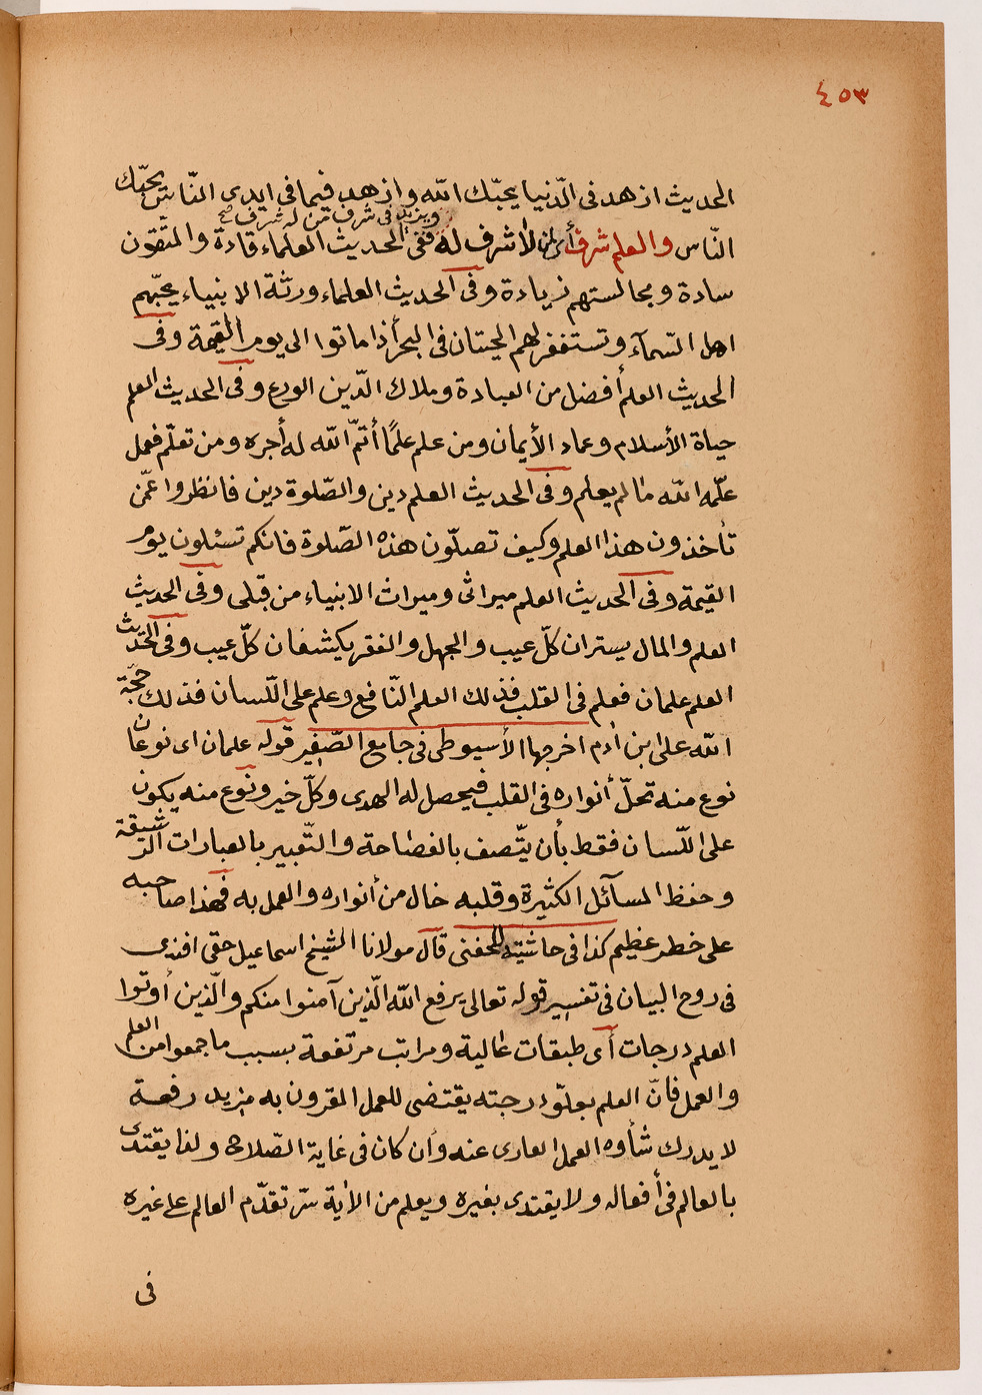 ٤٥٣
الحديث ازهد فى الدّنيا يحبّك الله وازهد فيما فى ايدى النّاس يحبّك
ويزيد فى شرف من له شرف صح
النّاس والعلم شرف أى لمن لا شرف له ففى الحديث العلماء قادة والمتّقون
سادة ومجالستهم زيادة وفى الحديث العلماء ورثة الانبياء يحبّهم
اهل السّمآء وتستغفر لهم الحيتان فى البحر أذا ماتوا الى يوم القيمة وفى
الحديث العلم أفضل من العبادة وملاك الدّين الورع وفى الحديث العلم
حياة الأسلام وعماد الأيمان ومن علم علمًا أتمّ الله له أجره ومن تعلّم فعمل
علّمه الله ما لم يعلم وفى الحديث العلم دين والصّلوة دين فانظروا عمّن
تأخذون هذا العلم وكيف تصلّون هذه الصّلوة فانكم تسئلون يوم
القيمة وفى الحديث العلم ميراثى وميراث الانبياء من قبلى وفى الحديث
العلم والمال يستران كلّ عيب والجهل والفقر يكشفان كلّ عيب وفى الحديث
العلم علمان فعلم فى القلب فذلك العلم النّافع وعلم على اللّسان فذلك حجّة
الله على ابن ادم اخرجها الأسيوطى فى جامع الصّغير قوله علمان اى نوعان
نوع منه تحلّ أنواره فى القلب فيحصل له الهدى وكلّ خير ونوع منه يكون
على اللّسان فقط بأن يتّصف بالفصاحة والتّعبير بالعبارات الرّشيقة
وحفظ المسآئل الكثيرة وقلبه خال من أنواره والعمل به فهذا صاحبه
على خطر عظيم كذا فى حاشيته للحفنى قال مولانا الشيخ اسماعيل حقى افندى
فى روح البيان فى تفسير قوله تعالى يرفع الله الّذين آمنوا منكم والّذين أوتوا
العلم درجات أى طبقات عالية ومراتب مرتفعة بسبب ما جمعوا من العلم
والعمل فانّ العلم بعلوّ درجته يقتضى للعمل المقرون به مزيد رفعة
لا يدرك شأوه العمل العارى عنه وأن كان فى غاية الصّلاح ولذا يقتدى
بالعالم فى أفعاله ولا يقتدى بغيره ويعلم من الاية سرّ تقدّم العالم على غيره
فى